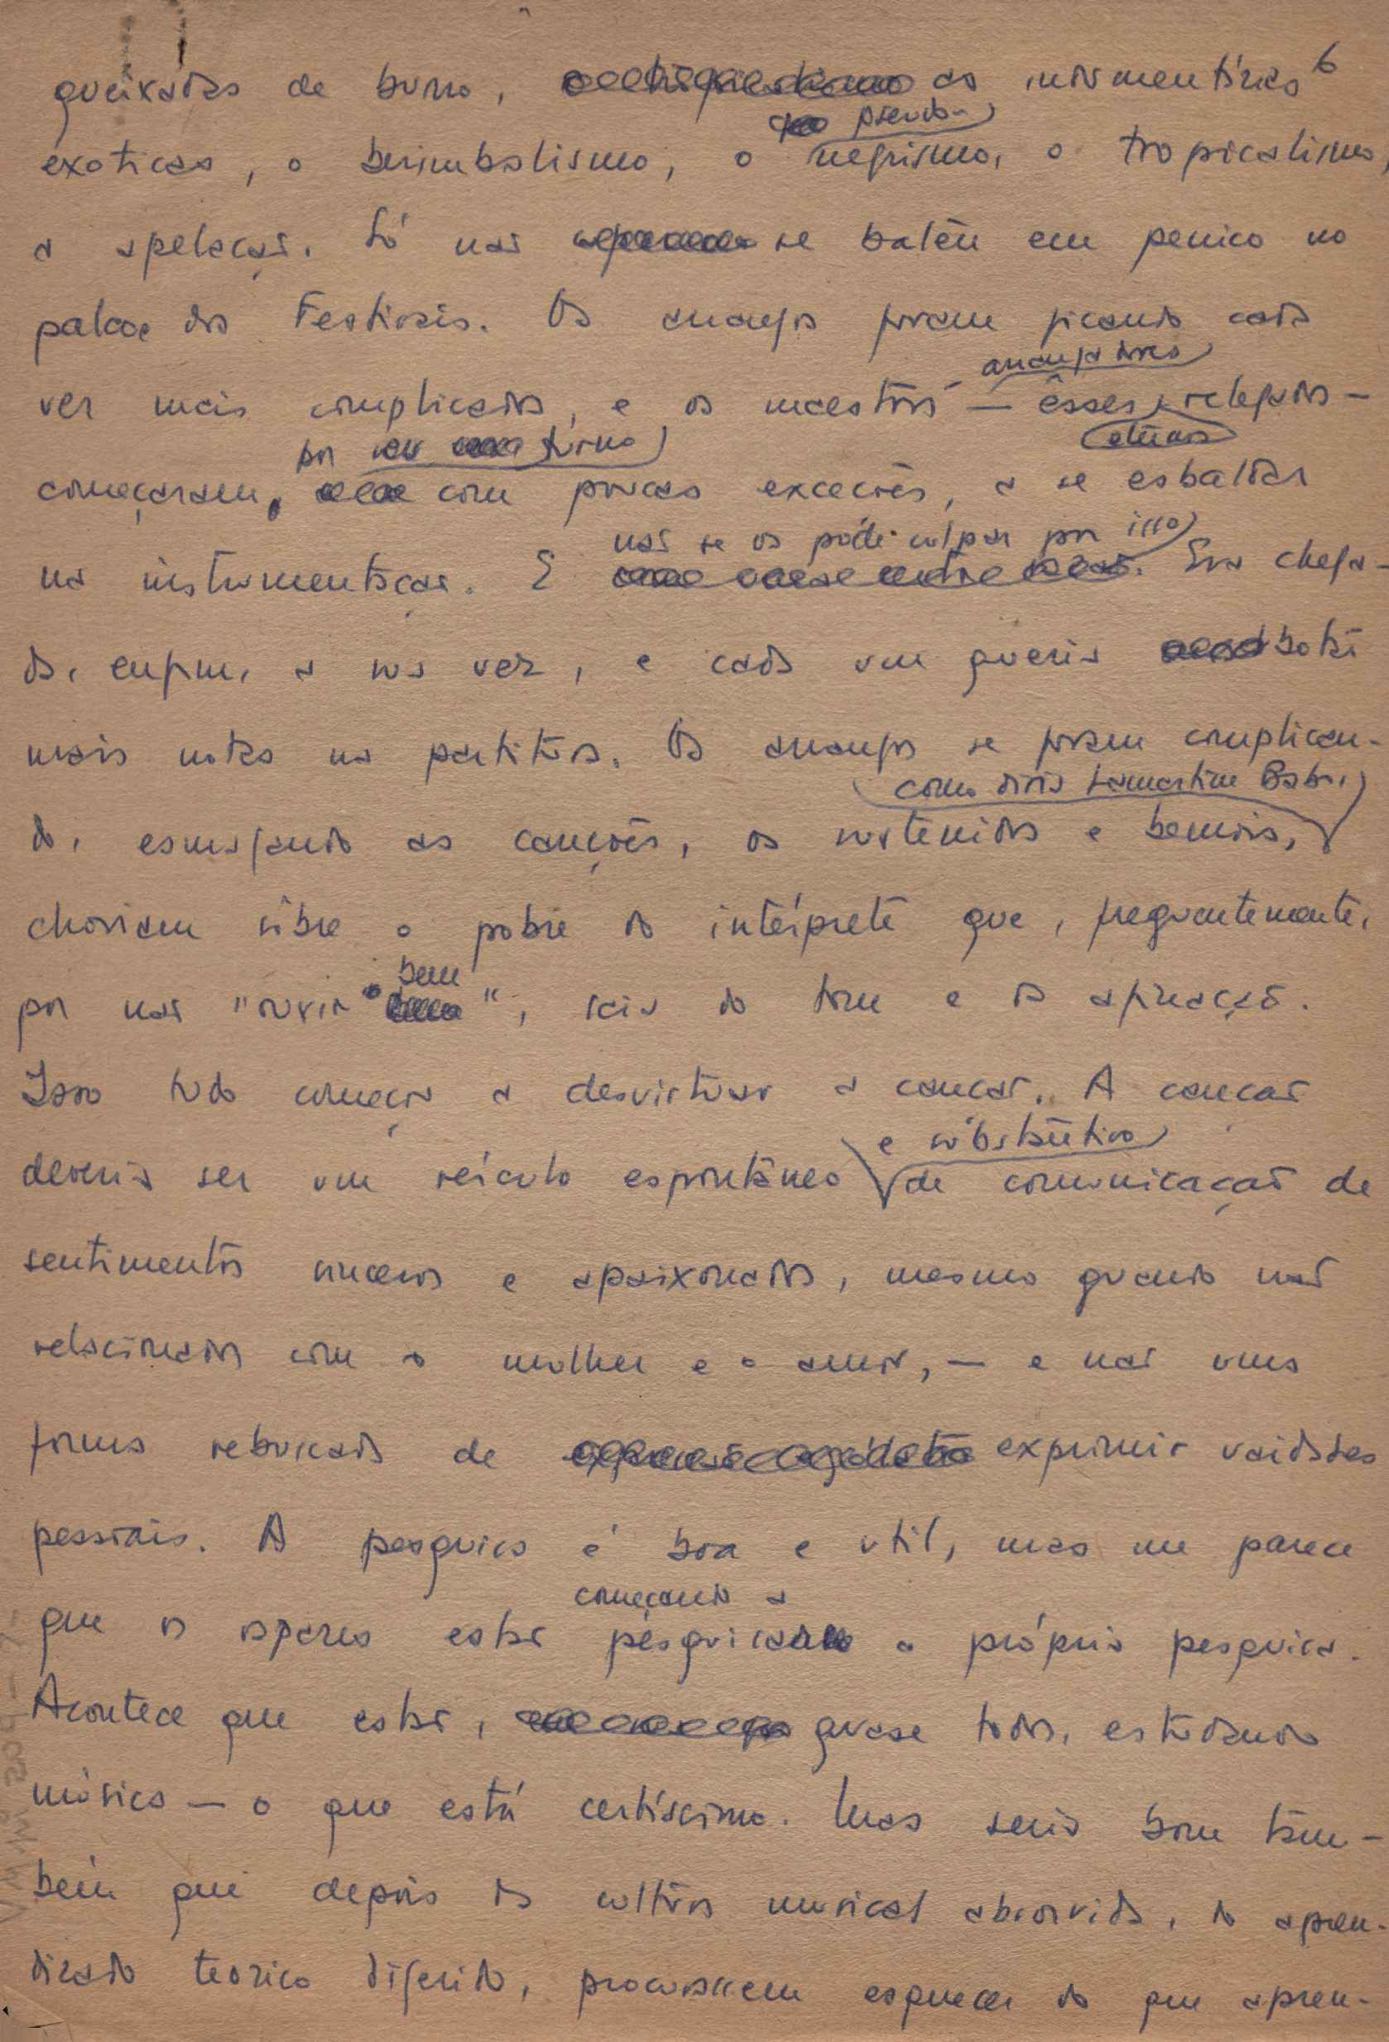 6
queixadas de burro, as indumentárias
pseudo-
exoticas, o berimbalismo, o negrismo, o tropicalismo,
a apelação. Só não se bateu em penico no
palco dos Festivais. Os arranjos foram ficando cada
arranjadores
vez mais complicados, e os maestros — êsses relegados —
eternos
por seu turno
começaram, com poucas exceções, a se esbaldar
não se os pode culpar por isso
na instrumentação. E . Era chega-
da, enfim, a sua vez, e cada um queria botar
mais notas na partitura. Os arranjos se foram complican-
como diria Lamartine Babo,
do, esmagando as canções, os sustenidos e bemois,
choviam sôbre o pobre do intérprete que, frequentemente,
bem
por não "ouvir ", saia do tom e da afinação.
Isso tudo começa a desvirtuar a canção. A canção
e substantivo
deveria ser um veículo espontâneo de comunicação de
sentimentos sinceros e apaixonados, mesmo quando não
relacionados com a mulher e o amor, — e não uma
forma rebuscada de exprimir vaidades
pessoais. A pesquisa é boa e util, mas me parece
começando a
que os rapazes estão pesquisar a própria pesquisa.
Acontece que estão, quase todos, estudando
música — o que está certíssimo. Mas seria bom tam-
bém que depois da cultura musical absorvida, do apren-
dizado teorico digerido, procurassem esquecer do que apren-